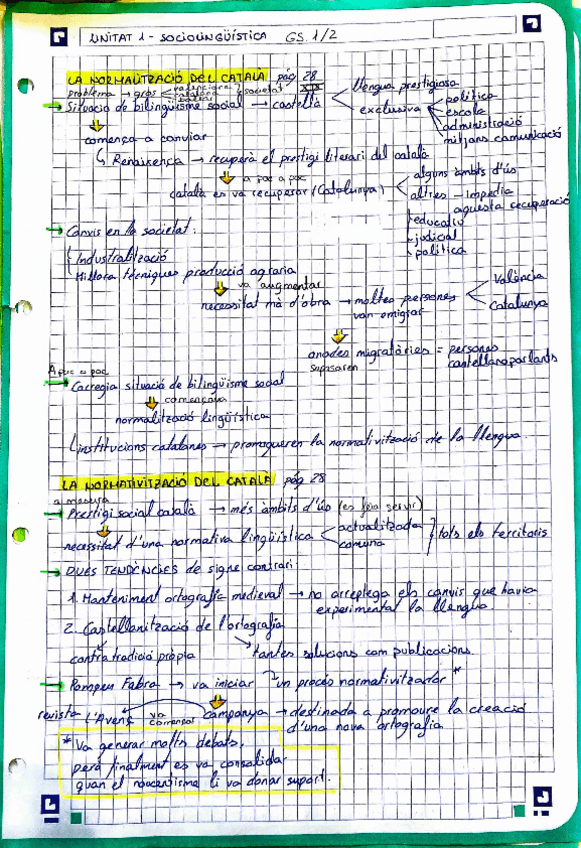 UNITAT 1 - SOCIOLINGÜÍSTICA GS. 1/2
LA NORMALITZACIÓ DEL CATALÀ pág 28
problema → gros valencians societat XIX
Situació de bilingüisme social → castellà
llengua prestigiosa
exclusiva
política
escola
administració
mitjans comunicació
comença a canviar
Renaixença → recuperà el prestigi literari del català
a poc a poc
català es va recuperar (Catalunya)
alguns àmbits d'ús
altres - Impedia
aquesta recuperació
- educatiu
- judicial
- política
Canvis en la societat:
Industralització
Millora tècniques producció agraria
va augmentar
necessitat mà d'obra → moltes persones
van emigrar
València
Catalunya
onades migratòries = persones
suposaren castellanoparlants
A poc a poc
Carregia situació de bilingüisme social
començava
normalització lingüística
institucions catalanes → promogueren la normativització de la llengua.
LA NORMATIVITZACIÓ DEL CATALÀ pág 28
a mesura
Prestigi social català → més àmbits d'ús (es feia servir)
necessitat d'una normativa lingüística
actualitzada
comuna
tots els territoris
DUES TENDÈNCIES de signe contrari:
1. Manteniment ortografia medieval → no arreplega els canvis que havia
experimentat la llengua.
2. Castellanització de l'ortografia
contra tradició pròpia
tantes solucions com publicacions.
Pompeu Fabra → va iniciar un procés normativitzador *
revista L'Avenç va començar campanya → destinada a promoure la creació
d'una nova ortografia
* Va generar molts debats,
però finalment es va consolidar
quan el noucentisme li va donar suport.